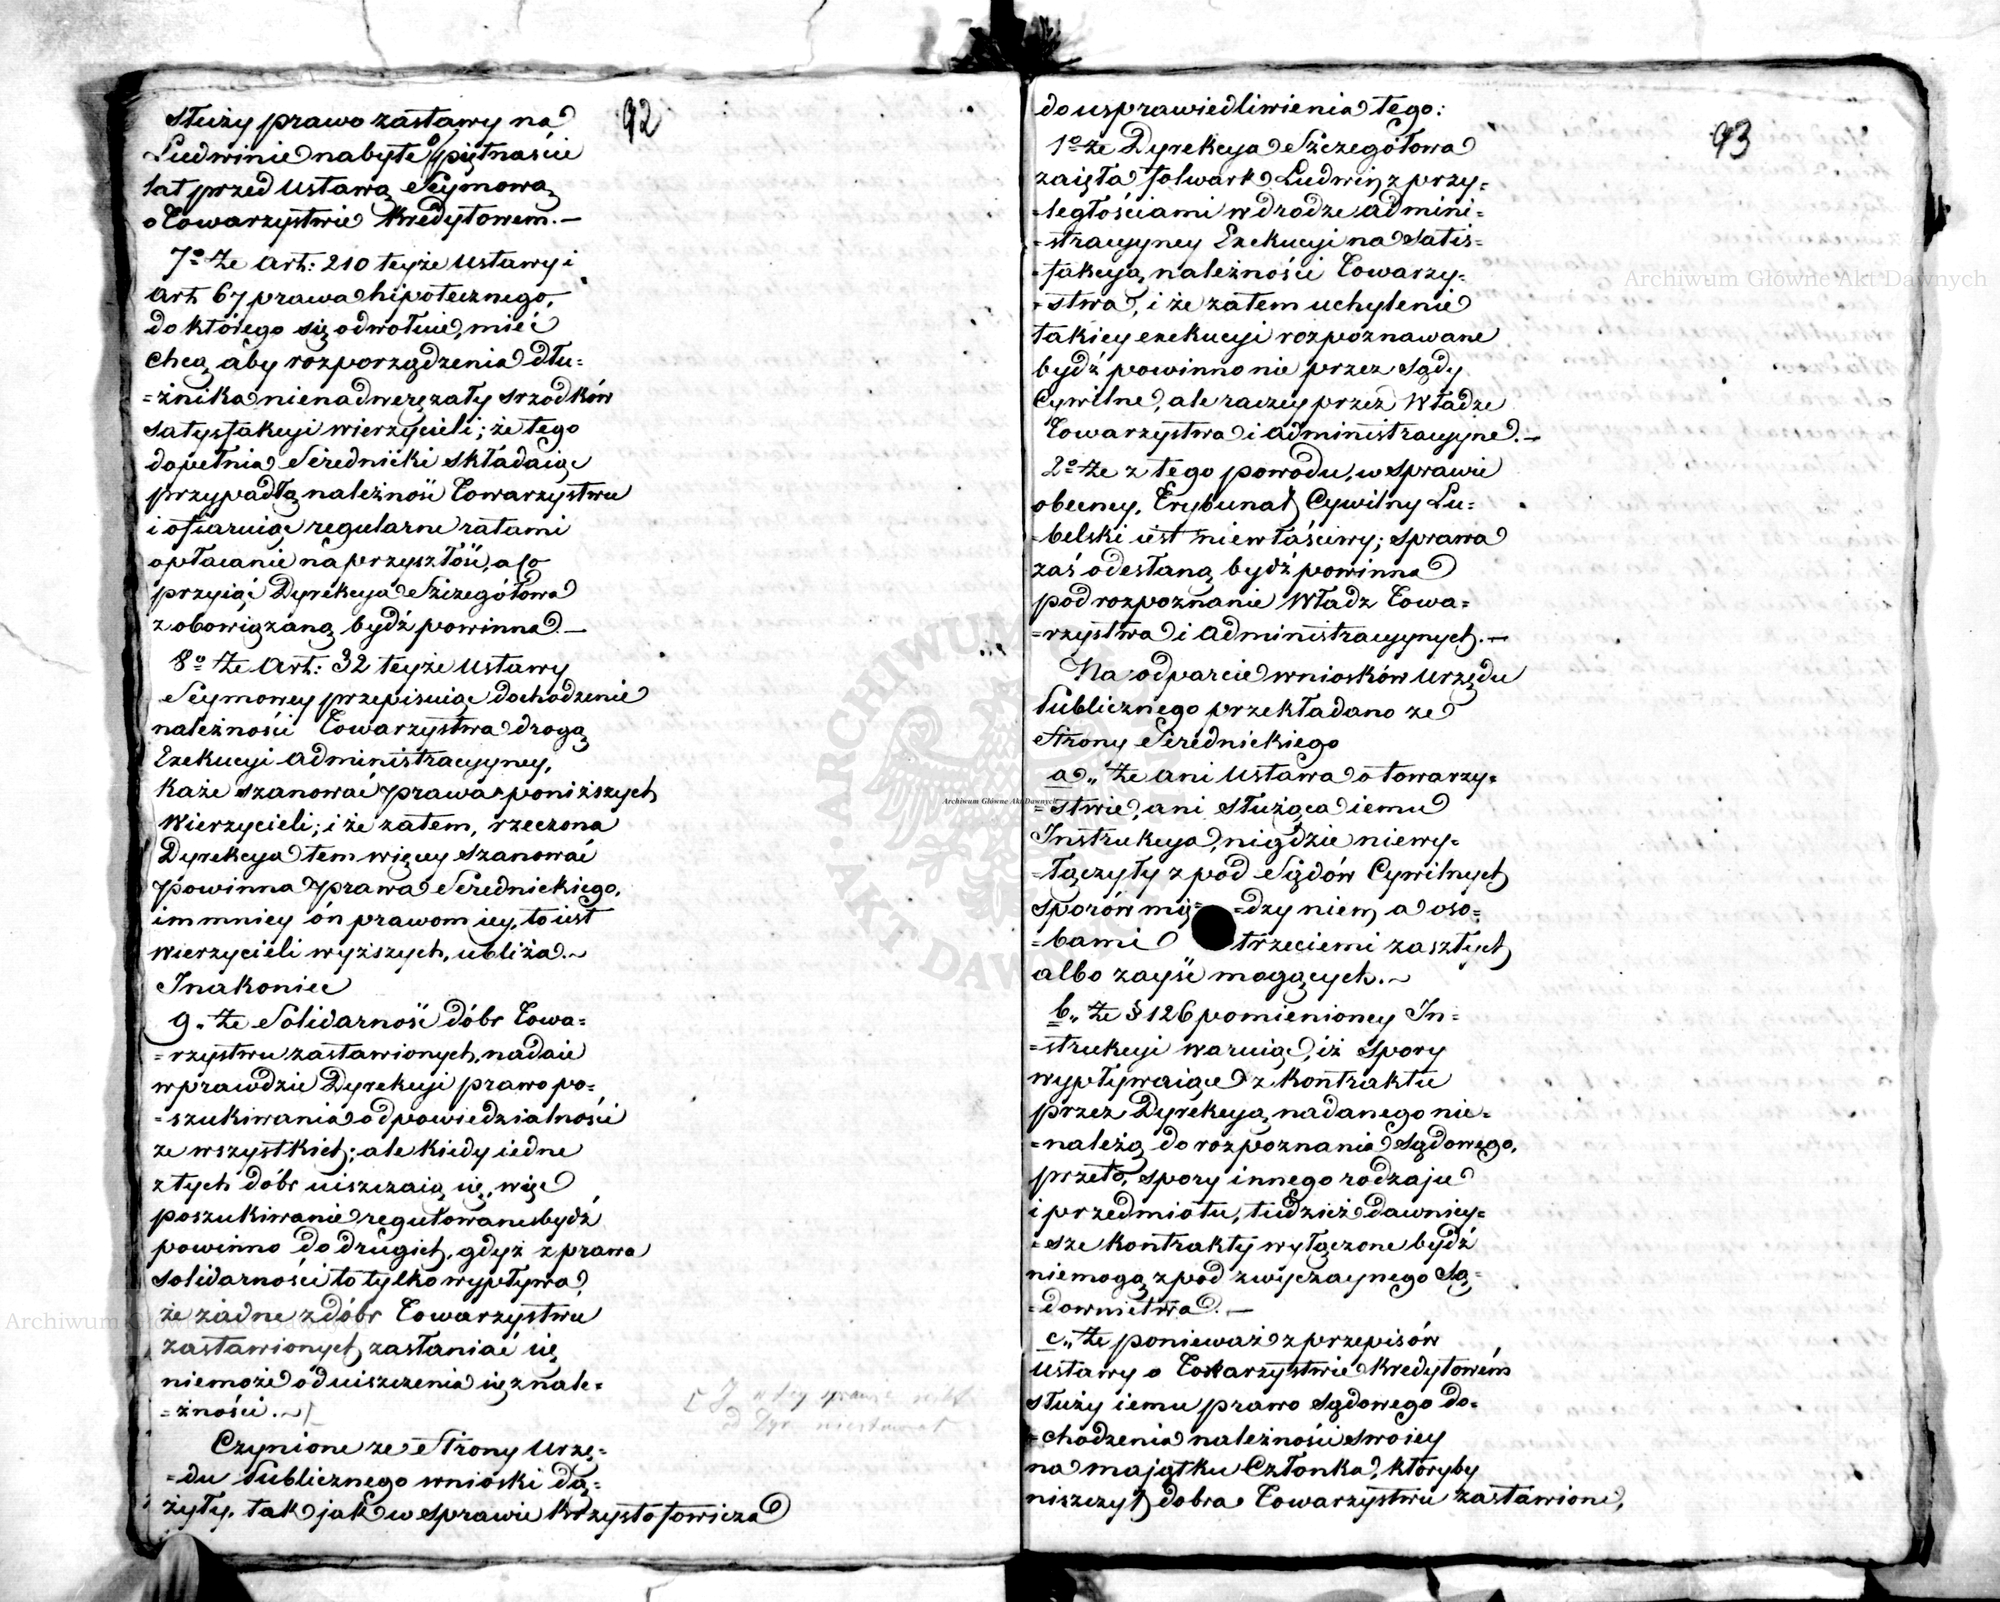 92
służy prawo zastawy na
Ludwinie nabyte piętnaście
lat przed ustawą Seymową
o Towarzystwie Kredytowem.—
7º że Art: 210 teyże ustawy i
Art 67 prawa hipotecznego,
do którego się odwołuie, mieć
chcą aby rozporządzenia dłu=
=żnika nienadweręzały srzodków
satysfakcyi wierzycieli; że tego
dopełnia Serednicki składaiąc
przypadłą należność Towarzystwu
i ofiaruiąc regularne ratami
opłacanie na przyszłość, a co
przyiąć Dyrekcya Szczegółowa
zobowiązaną bydź powinna.—
8º że Art: 32 teyże ustawy
Seymowey przepisuiąc dochodzenie
należności Towarzystwa drogą
Exekucyi Administracyyney,
każe szanować prawa poniższych
Wierzycieli; i że zatem, rzeczona
Dyrekcya tem więcey szanować
powinna prawa Serednickiego,
im mniey ón prawom iey, to iest
wierzycieli wyższych, ubliża.~
Inakoniec
9. że Solidarność dóbr Towa=
=rzystwu zastawionych, nadaie
wprawdzie Dyrekcyi prawo po=
=szukiwania odpowiedzialności
ze wszystkich; ale kiedy iedne
z tych dóbr uiszczaią się, więc
poszukiwanie regulowane bydź
powinno do drugich, gdyż z prawa
solidarności to tylko wypływa,
że żadne z dóbr Towarzystwu
zastawionych zasłaniać się
niemoże od uiszczenia się z nale=
=żności.~
Czynione ze Strony Urzę=
=du Publicznego wnioski dą=
żyły, tak jak w sprawie Krzysztofowicza
93
do usprawiedliwienia tego:
1º że Dyrekcya Szczegółowa
zaięła folwark Ludwin z przy=
=ległościami w drodze admini=
=stracyyney Exekucyi na satis=
=fakcyą należności Towarzy=
=stwa, i że zatem uchylenie
takiey exekucyi rozpoznawane
bydź powinno nie przez Sądy
Cywilne, ale raczey przez Władze
Towarzystwa i administracyyne.—
2º że z tego powodu, w sprawie
obecney, Trybunał Cywilny Lu=
=belski iest niewłaściwy; sprawa
zaś odesłaną bydź powinna
pod rozpoznanie Władz Towa=
=rzystwa i Administracyynych.—
Na odparcie wniosków Urzędu
Publicznego przekładano ze
Strony Serednickiego
a„ że ani Ustawa o towarzy=
=stwie, ani służąca iemu
Instrukcya, nigdzie niewy=
=łączyły z pod Sądów Cywilnych
sporów mię= =dzy niem, a oso=
=bami trzeciemi zaszłych
albo zayść mogących.~
b„ że § 126 pomienioney In=
=strukcyi waruiąc, iż spory
wypływaiące z kontraktu
przez Dyrekcyą nadanego nie=
=należą do rozpoznania Sądowego,
przeto, spory innego rodzaju
i przedmiotu, tudzież dawniey=
=sze kontrakty wyłączone bydź
niemogą z pod zwyczaynego Są=
=downictwa.—
c„ że ponieważ z przepisów
Ustawy o Towarzystwie Kredytowém
służy iemu prawo Sądowego do=
=chodzenia należności swoiey
na majątku Członka, któryby
niszczył dobra Towarzystwu zastawione,
Archiwum Główne Akt Dawnych
Archiwum Główne Akt Dawnych
Archiwum Główne Akt Dawnych